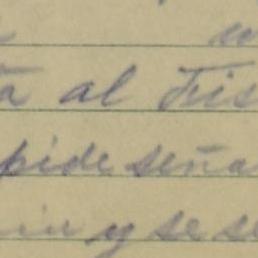 a al Fis
pide seña
y se se